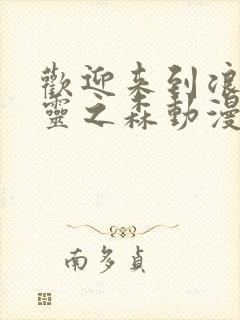 歡迎来到浪
靈之森動漫
南多貞